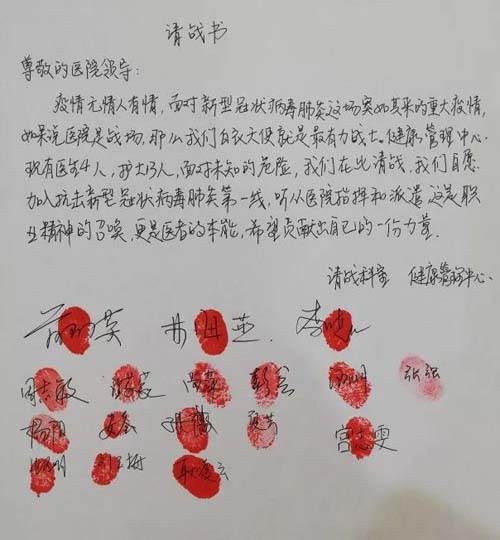 请战书
尊敬的医院领导：
疫情无情人有情，面对新型冠状病毒肺炎这场突如其来的重大疫情，
如果说医院是战场，那么我们白衣天使就是最有力战士。健康管理中心
现有医生4人，护士13人，面对未知的危险，我们在此请战，我们自愿
加入抗击新型冠状病毒肺炎第一线，听从医院指挥和派遣，这是职
业精神的召唤，更是医者的本能，希望贡献出自己的一份力量。
请战科室 健康管理中心
周志敏 彭 张强
杨阳 宫志雯